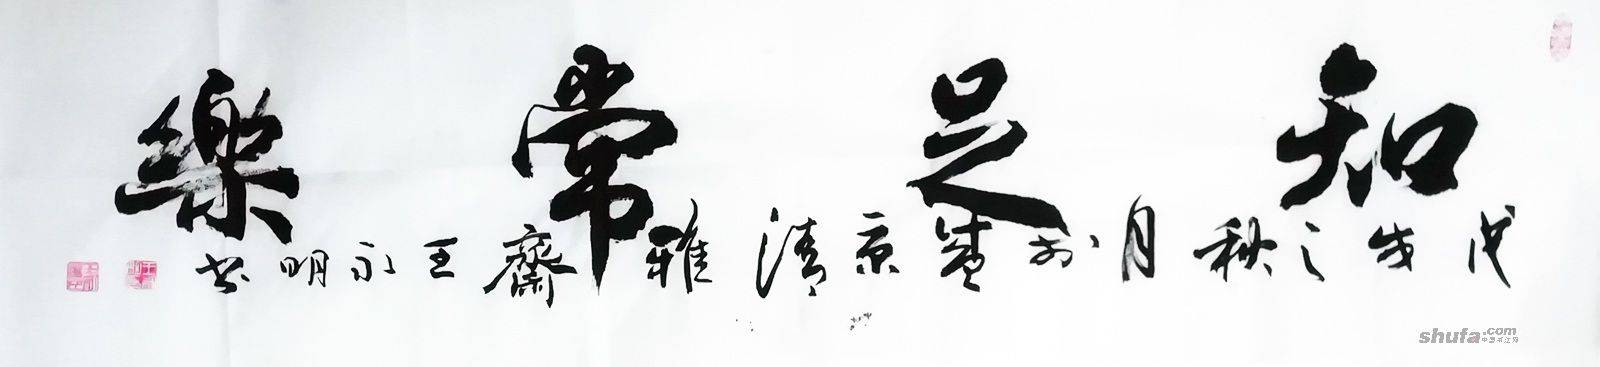 知足常樂
戊戌之秋月於盛京清雅齋王永明书
shufa.com